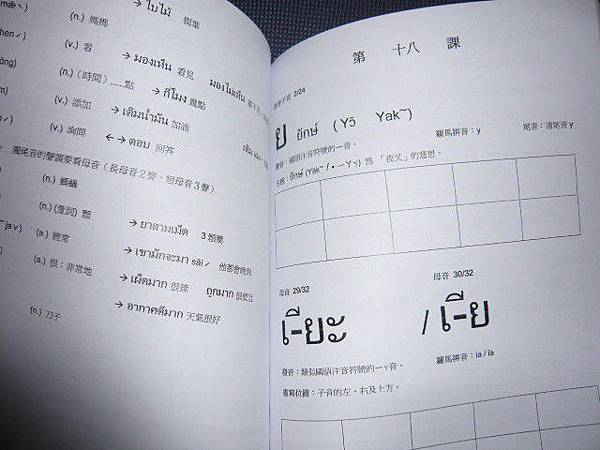 (n.) 媽媽 → ใบไม้ 樹葉
(v.) 看 → มองเห็น 看見 มองไม่เห็น
(n.)（時間）......點 → กี่โมง 幾點
(v.) 添加 → เติมน้ำมัน 加油
(v.) 詢問 ←→ ตอบ 回答
濁尾音的聲調要看母音（長母音2聲、短母音3聲）
(n.) 螞蟻
(n.) (量詞) 顆 → ยาสามเม็ด 3顆藥
(a.) 經常 → เขามักจะมา สาย
(a.) 很；非常地 → เผ็ดมาก 很辣 ถูกมาก 很便宜
→ อากาศดีมาก 天氣很好
(n.) 刀子
第 十八 課
2/24
ย ยักษ์ (Yɔ̄ Yak~)
發音：國語注音符號的ㄧ音。 羅馬拼音：y 尾音：清尾音y
名稱：ยักษ์ 為「夜叉」的意思。
母音 29/32 母音 30/32
เ-ียะ / เ-ีย
發音：類似國語注音符號的ㄧㄚ音。 羅馬拼音：ia / īa
書寫位置：子音的左、右及上方。